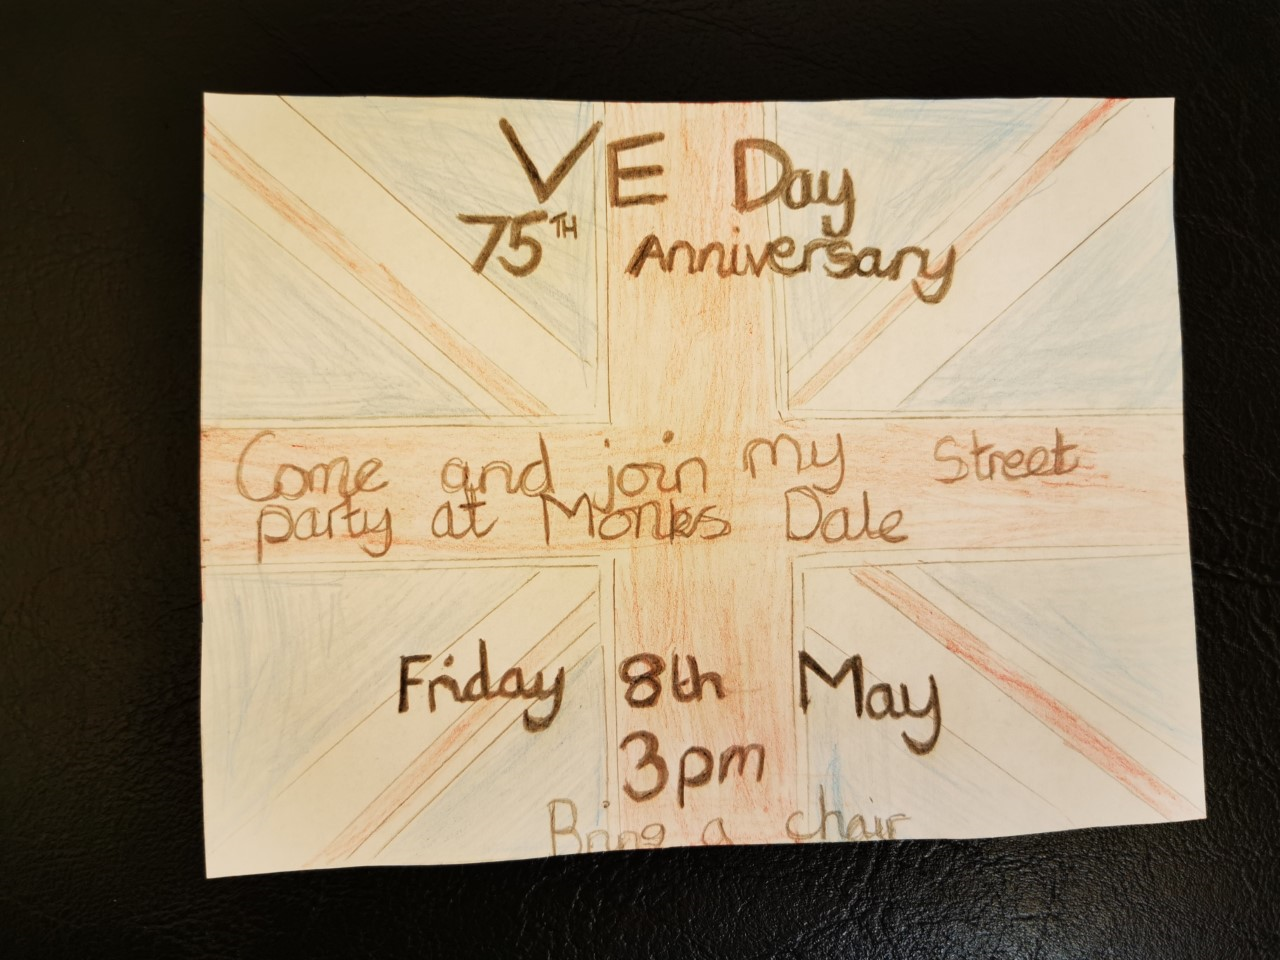 VE Day
75TH Anniversary
Come and join my Street
party at Monks Dale
Friday 8th May
3pm
Bring a chair